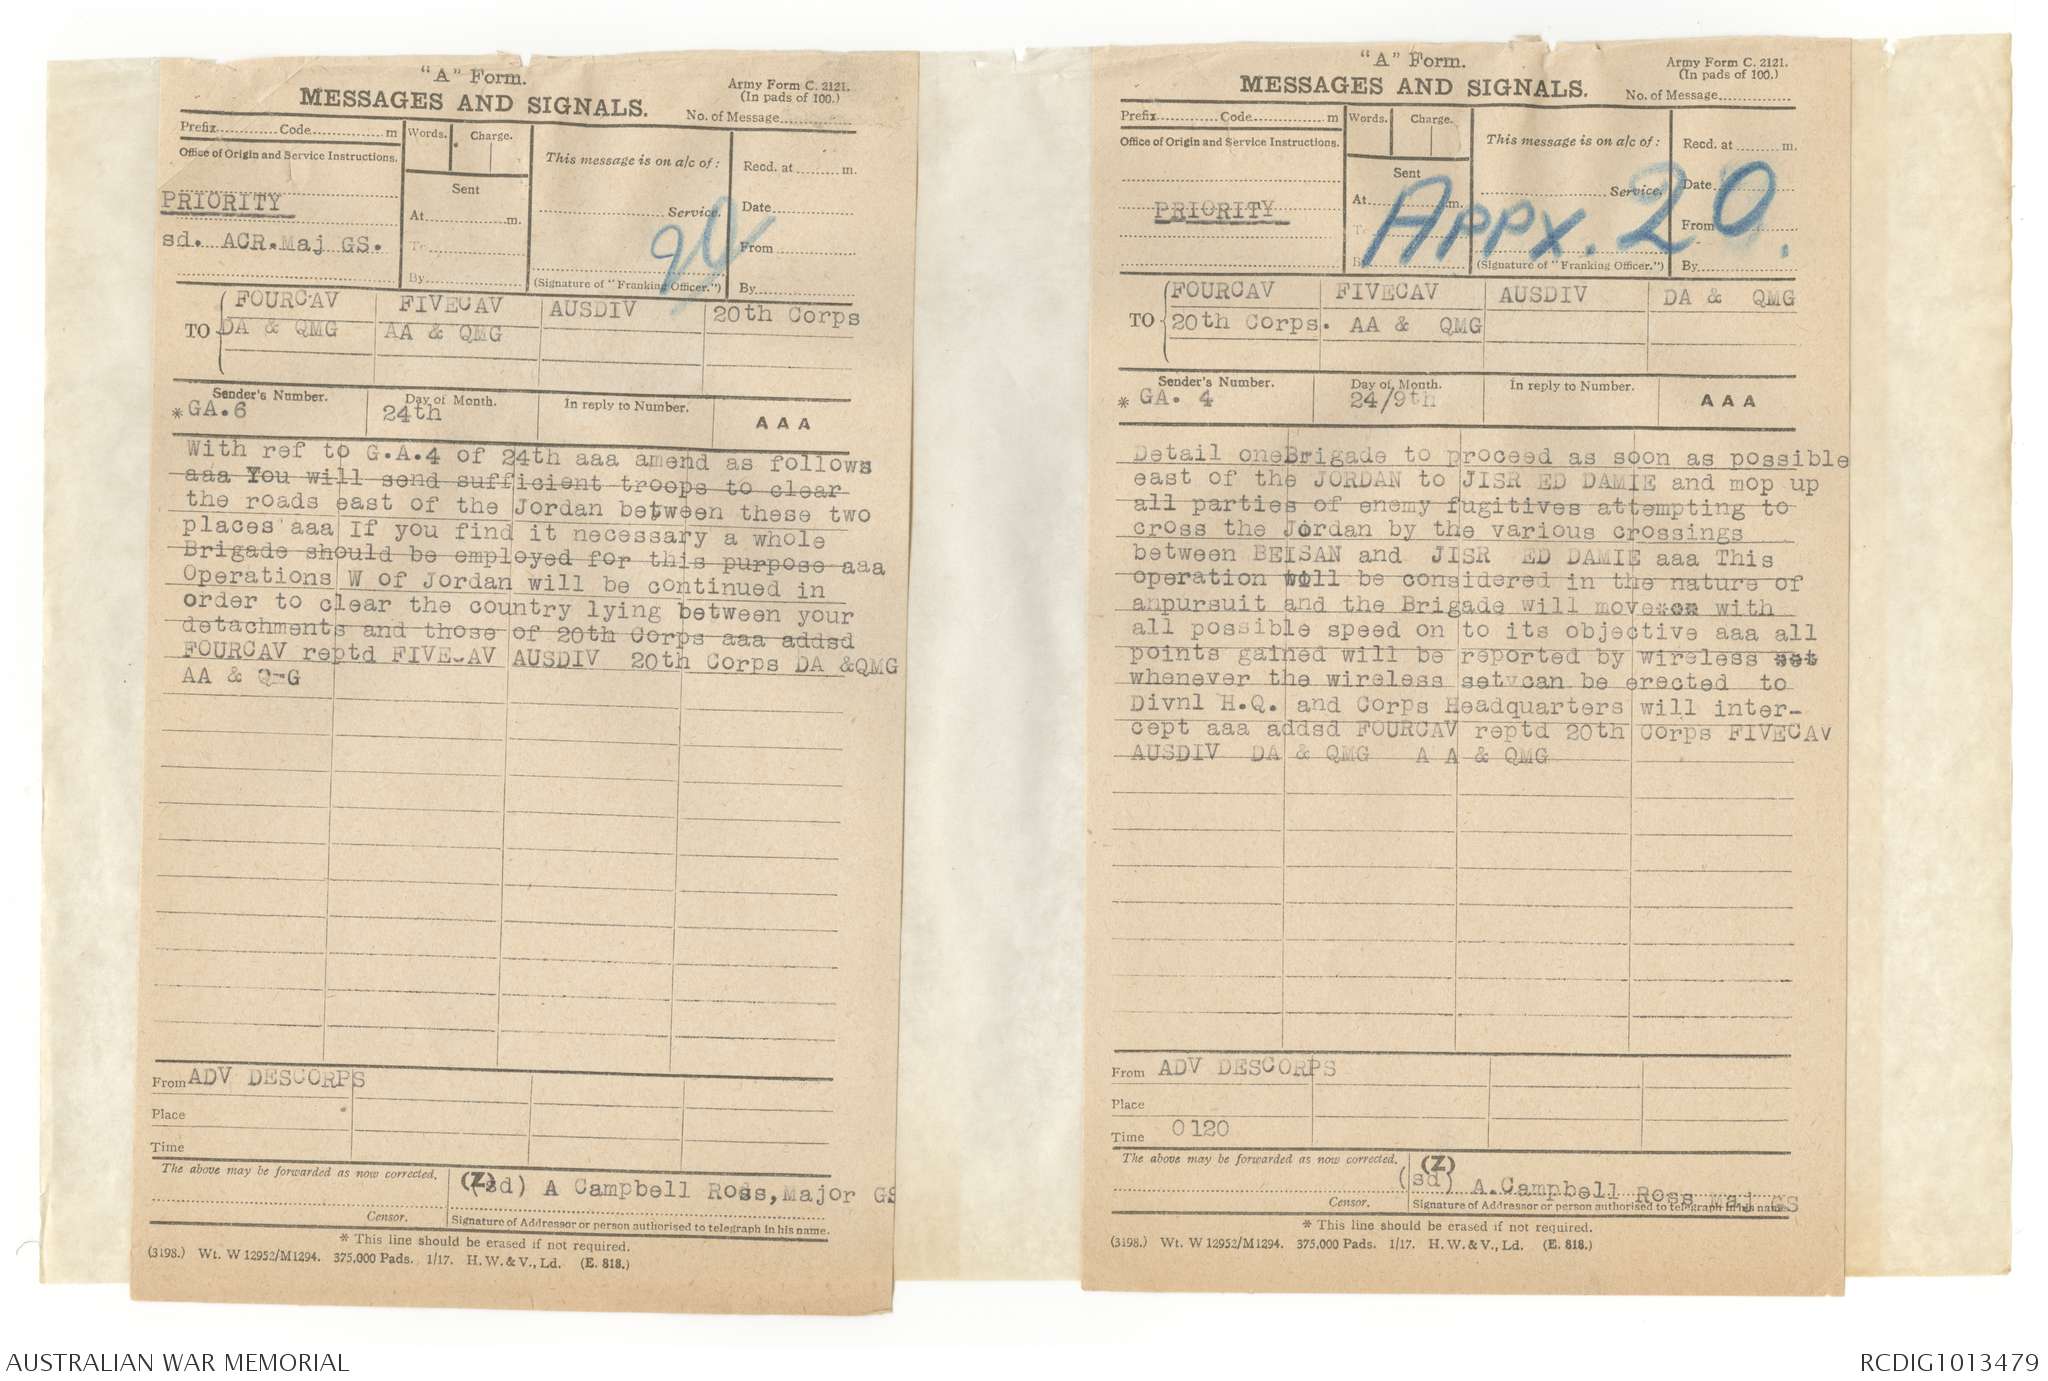 "A" Form.
Army Form C. 2121.
(In pads of 100.)
MESSAGES AND SIGNALS.
No. of Message
Prefix Code m
Words. Charge.
This message is on a/c of:
Recd. at m.
Office of Origin and Service Instructions.
Sent
PRIORITY
At m.
Service.
Date
sd. ACR.Maj GS.
To
20
From
By
(Signature of "Franking Officer.")
By
TO
FOURCAV FIVECAV AUSDIV 20th Corps
DA & QMG AA & QMG
Sender's Number. Day of Month. In reply to Number. AAA
*GA.6 24th
With ref to G.A.4 of 24th aaa amend as follows
aaa You will send sufficient troops to clear
the roads east of the Jordan between these two
places aaa If you find it necessary a whole
Brigade should be employed for this purpose aaa
Operations W of Jordan will be continued in
order to clear the country lying between your
detachments and those of 20th Corps aaa addsd
FOURCAV reptd FIVE-AV AUSDIV 20th Corps DA &QMG
AA & Q-G
From ADV DESCORPS
Place
Time
The above may be forwarded as now corrected.
(Z)
(sd) A Campbell Ross,Major GS
Censor.
Signature of Addressor or person authorised to telegraph in his name.
* This line should be erased if not required.
(3198.) Wt. W 12952/M1294. 375,000 Pads. 1/17. H. W. & V., Ld. (E. 818.)
"A" Form.
Army Form C. 2121.
(In pads of 100.)
MESSAGES AND SIGNALS.
No. of Message
Prefix Code m
Words. Charge.
This message is on a/c of:
Recd. at m.
Office of Origin and Service Instructions.
Sent
Service.
Date
PRIORITY
At m.
APPX. 20.
From
To
By
(Signature of "Franking Officer.")
By
TO
FOURCAV FIVECAV AUSDIV DA & QMG
20th Corps. AA & QMG
Sender's Number. Day of Month. In reply to Number. AAA
* GA. 4 24/9th
Detail oneBrigade to proceed as soon as possible
east of the JORDAN to JISR ED DAMIE and mop up
all parties of enemy fugitives attempting to
cross the Jordan by the various crossings
between BEISAN and JISR ED DAMIE aaa This
operation will be considered in the nature of
anpursuit and the Brigade will move with
all possible speed on to its objective aaa all
points gained will be reported by wireless set
whenever the wireless set can be erected to
Divnl H.Q. and Corps Headquarters will inter-
cept aaa addsd FOURCAV reptd 20th Corps FIVECAV
AUSDIV DA & QMG A A & QMG
From ADV DESCORPS
Place
Time 0120
The above may be forwarded as now corrected.
(Z)
(sd) A.Campbell Ross Maj GS
Censor.
Signature of Addressor or person authorised to telegraph in his name
* This line should be erased if not required.
(3198.) Wt. W 12952/M1294. 375,000 Pads. 1/17. H. W. & V., Ld. (E. 818.)
AUSTRALIAN WAR MEMORIAL
RCDIG1013479